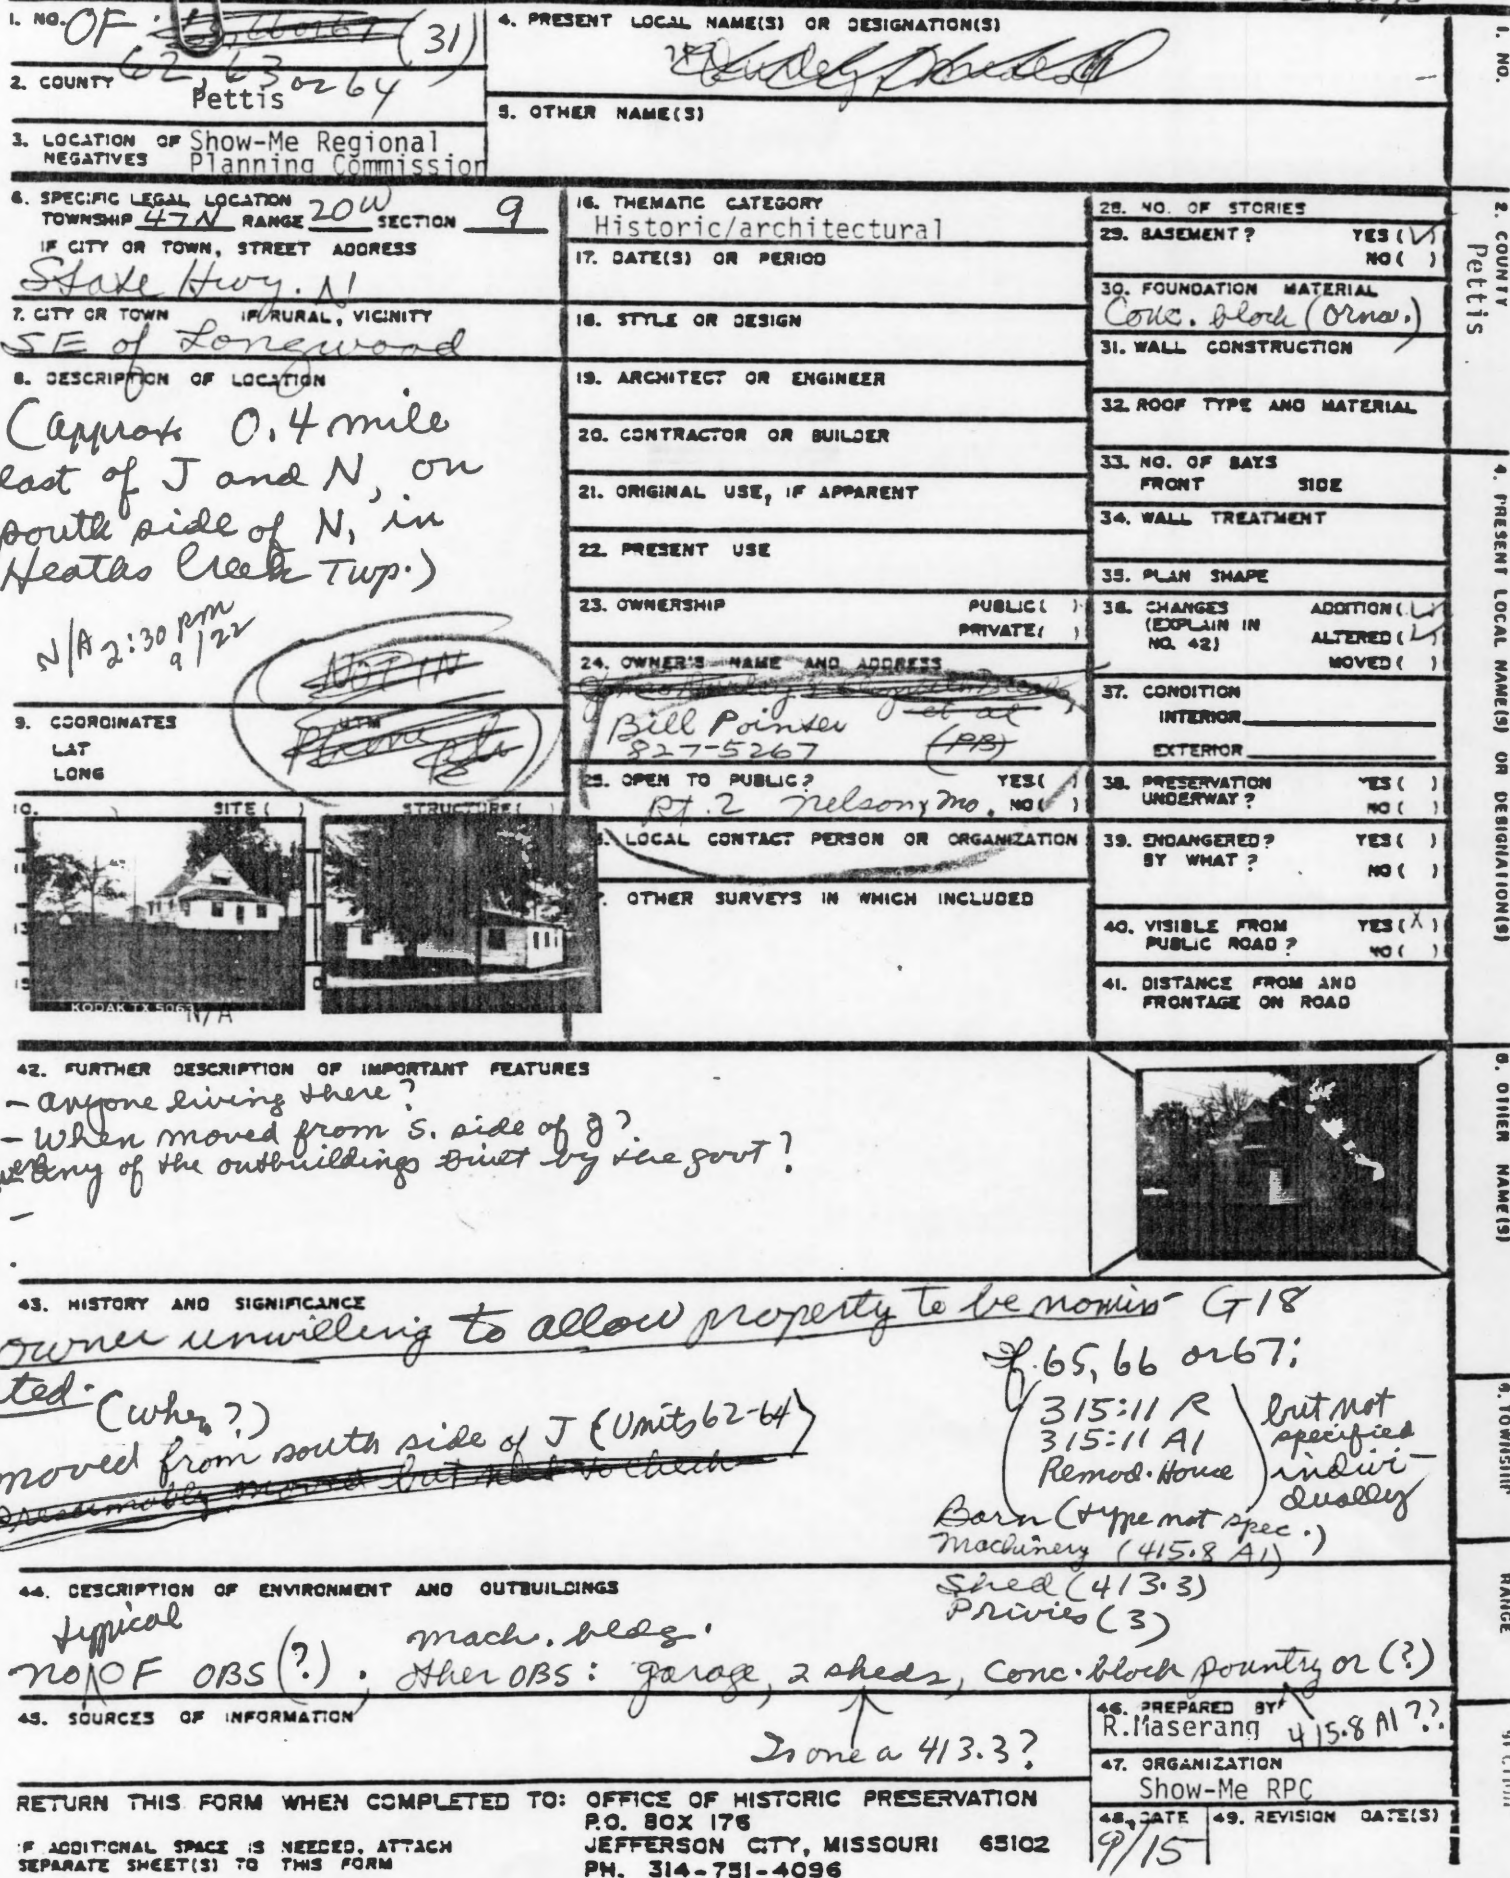 1. NO. OF (31)
62, 63 or 64
2. COUNTY
Pettis
3. LOCATION OF NEGATIVES
Show-Me Regional
Planning Commission
4. PRESENT LOCAL NAME(S) OR DESIGNATION(S)
5. OTHER NAME(S)
6. SPECIFIC LEGAL LOCATION
TOWNSHIP 47N RANGE 20W SECTION 9
IF CITY OR TOWN, STREET ADDRESS
State Hwy. N
7. CITY OR TOWN IF RURAL, VICINITY
SE of Longwood
8. DESCRIPTION OF LOCATION
(approx 0.4 mile
east of J and N, on
south side of N, in
Heaths Creek Twp.)
N/A 2:30 pm
9/22
NOT IN
Phone
9. COORDINATES UTM
LAT
LONG
10. SITE ( ) STRUCTURE ( )
KODAK TX 5063
N/A
16. THEMATIC CATEGORY
Historic/architectural
17. DATE(S) OR PERIOD
18. STYLE OR DESIGN
19. ARCHITECT OR ENGINEER
20. CONTRACTOR OR BUILDER
21. ORIGINAL USE, IF APPARENT
22. PRESENT USE
23. OWNERSHIP PUBLIC ( )
PRIVATE ( )
24. OWNER'S NAME AND ADDRESS
et al
Bill Pointer
827-5267 (PB)
25. OPEN TO PUBLIC? YES ( )
Rt. 2 Nelson, Mo. NO ( )
LOCAL CONTACT PERSON OR ORGANIZATION
OTHER SURVEYS IN WHICH INCLUDED
28. NO. OF STORIES
29. BASEMENT? YES (✓)
NO ( )
30. FOUNDATION MATERIAL
Conc. block (orna.)
31. WALL CONSTRUCTION
32. ROOF TYPE AND MATERIAL
33. NO. OF BAYS
FRONT SIDE
34. WALL TREATMENT
35. PLAN SHAPE
36. CHANGES ADDITION (✓)
(EXPLAIN IN NO. 42) ALTERED (✓)
MOVED ( )
37. CONDITION
INTERIOR
EXTERIOR
38. PRESERVATION YES ( )
UNDERWAY? NO ( )
39. ENDANGERED? YES ( )
BY WHAT? NO ( )
40. VISIBLE FROM YES (X)
PUBLIC ROAD? NO ( )
41. DISTANCE FROM AND
FRONTAGE ON ROAD
42. FURTHER DESCRIPTION OF IMPORTANT FEATURES
- anyone living there?
- When moved from S. side of J?
any of the outbuildings built by the govt?
-
43. HISTORY AND SIGNIFICANCE
owner unwilling to allow property to be nomin- G18
ted.
(when?)
moved from south side of J (Units 62-64)
presumably moved but need to check
If 65, 66 or 67:
315:11 R
315:11 A1
Remod. House
but not
specified
indivi-
dually
Barn (type not spec.)
Machinery (415.8 A1)
Shed (413.3)
Privies (3)
44. DESCRIPTION OF ENVIRONMENT AND OUTBUILDINGS
typical
mach. bldg.
no OF OBS (?); other OBS: garage, 2 sheds, conc. block pountry or (?)
Is one a 413.3?
415.8 A1??
45. SOURCES OF INFORMATION
46. PREPARED BY
R.Maserang
47. ORGANIZATION
Show-Me RPC
48. DATE
9/15
49. REVISION DATE(S)
RETURN THIS FORM WHEN COMPLETED TO: OFFICE OF HISTORIC PRESERVATION
P.O. BOX 176
JEFFERSON CITY, MISSOURI 65102
PH. 314-751-4096
IF ADDITIONAL SPACE IS NEEDED, ATTACH
SEPARATE SHEET(S) TO THIS FORM
1. NO.
2. COUNTY
Pettis
4. PRESENT LOCAL NAME(S) OR DESIGNATION(S)
OTHER NAME(S)
TOWNSHIP
RANGE
SECTION